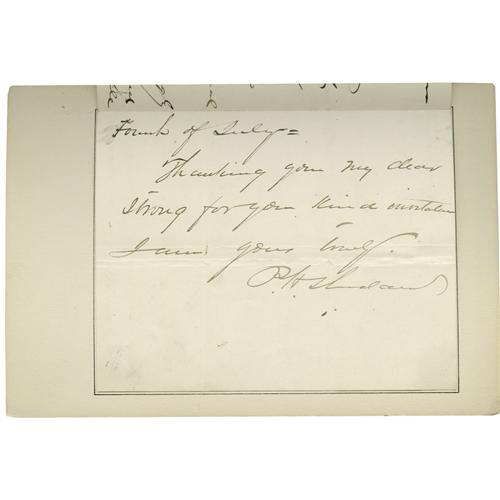 Fourth of July =
Thanking you my dear
Strong for your kind invitation
I am yours truly.
P. H. Sheridan